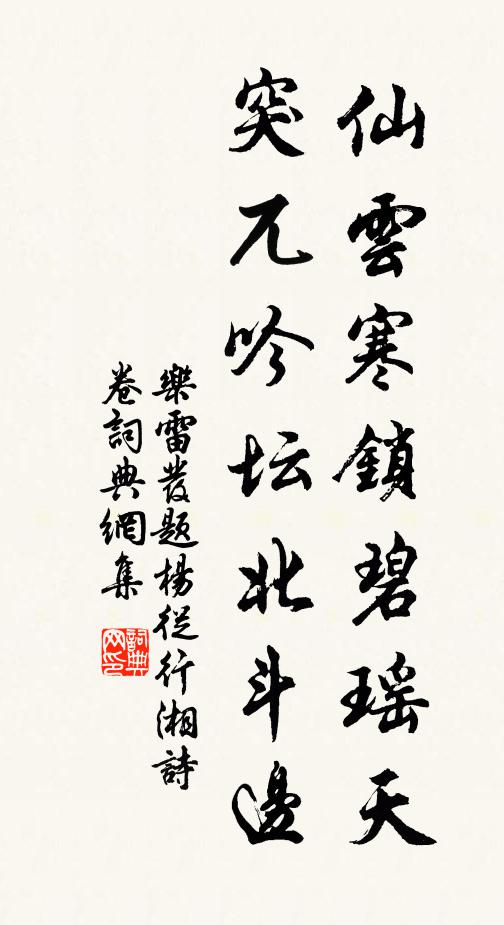 仙雲寒鎖碧瑶天
突兀吟坛北斗邊
樂雷發题楊從行湘詩
卷詞典網集
詞典网印